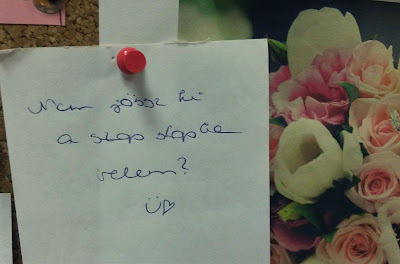 Nem jössz ki
a stop stopba
velem?
Ü♡